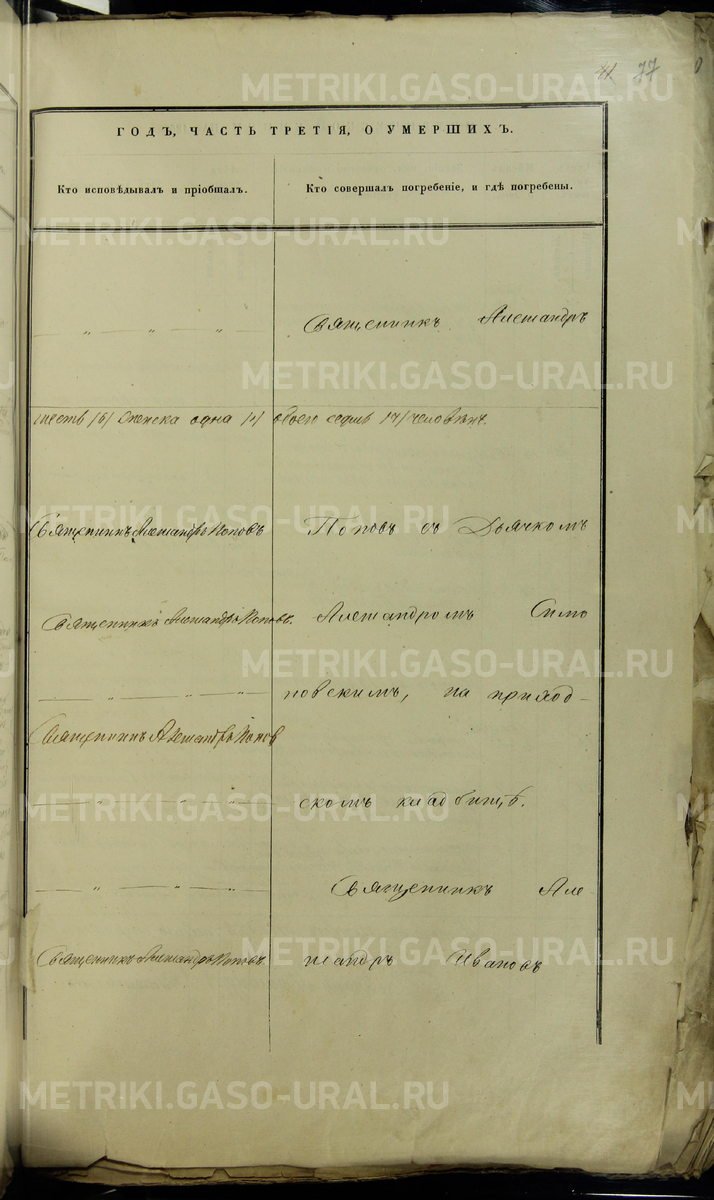 41 77
ГОДЪ, ЧАСТЬ ТРЕТІЯ, О УМЕРШИХЪ.
Кто исповѣдывалъ и пріобщалъ.
Кто совершалъ погребеніе, и гдѣ погребены.
" " "
Священникъ Алешандръ
шесть /6/ женска одна /1/ обоего седмь /7/ человѣкъ.
Священникъ Алешандръ Поповъ
Поповъ съ Дьячкомъ
Священникъ Алешандръ Поповъ.
Алешандромъ Симо
" " "
новскимъ, на приход-
Священникъ Алешандръ Попов
" " "
скомъ кладбищѣ.
" " "
Священникъ Але
Священникъ Алешандръ Поповъ
шандръ Ивановъ
METRIKI.GASO-URAL.RU